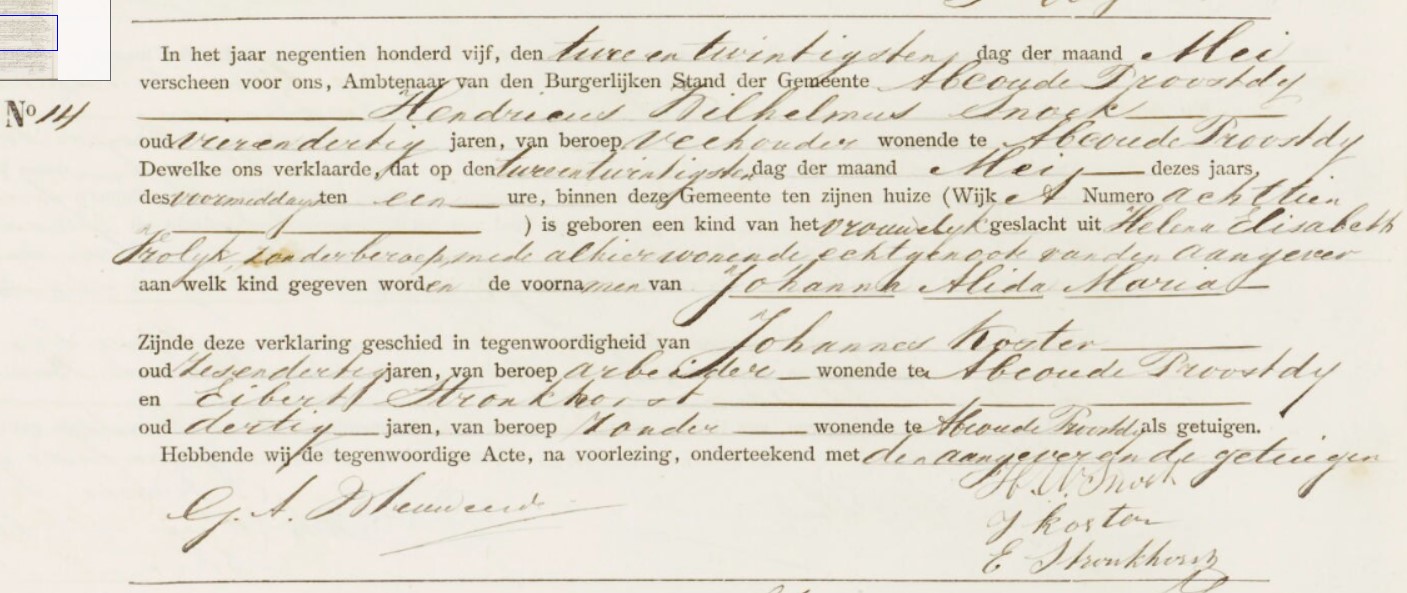 In het jaar negentien honderd vijf, den twee en twintigsten dag der maand Mei
verscheen voor ons, Ambtenaar van den Burgerlijken Stand der Gemeente Abcoude Proostdy
No 14 Hendricus Wilhelmus Snoek
oud vierendertig jaren, van beroep veehouder wonende te Abcoude Proostdy
Dewelke ons verklaarde, dat op den tweeentwintigsten dag der maand Mei dezes jaars,
des voormiddags ten een ure, binnen deze Gemeente ten zijnen huize (Wijk A Numero achttien
) is geboren een kind van het vrouwelyk geslacht uit Helena Elisabeth
Vrolyk, zonder beroep, mede alhier wonende, echtgenoote van den aangever
aan welk kind gegeven worden de voornamen van Johanna Alida Maria
Zijnde deze verklaring geschied in tegenwoordigheid van Johannes Koster
oud zesendertig jaren, van beroep arbeider wonende te Abcoude Proostdy
en Eibert Stronkhorst
oud dertig jaren, van beroep zonder wonende te Abcoude Proostdy als getuigen.
Hebbende wij de tegenwoordige Acte, na voorlezing, onderteekend met den aangever en de getuigen
H. W. Snoek
G. A.
J Koster
E Stronkhorst